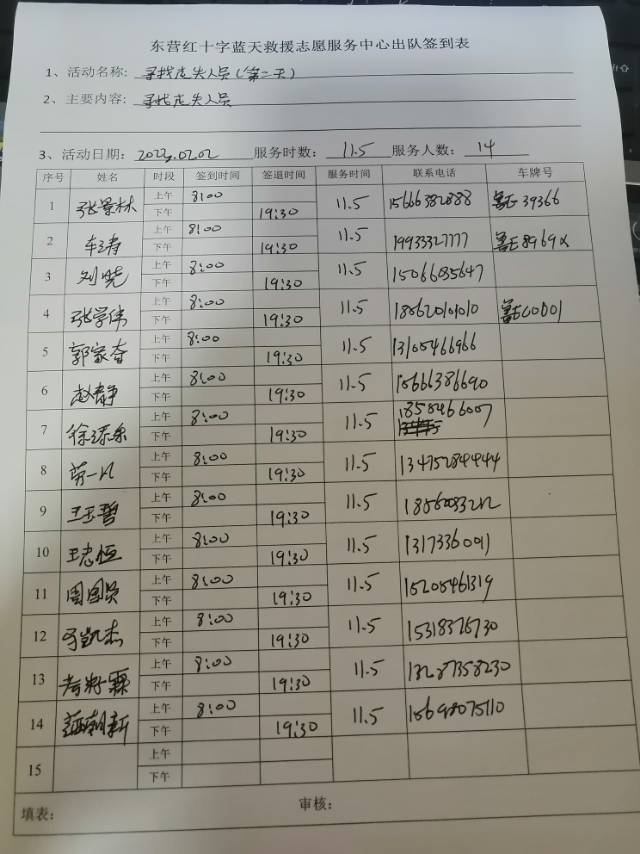 东营红十字蓝天救援志愿服务中心出队签到表
1、活动名称: 寻找走失人员(第二天)
2、主要内容: 寻找走失人员
3、活动日期: 2023.02.02 服务时数: 11.5 服务人数: 14
序号 姓名 时段 签到时间 签退时间 服务时间 联系电话 车牌号
1 张景林 上午 8:00 11.5 15666382888 鲁E39366
下午 19:30
2 车涛 上午 8:00 11.5 19933327777
下午 19:30
3 刘晓 上午 8:00 11.5 15066085647
下午 19:30
4 张学伟 上午 8:00 11.5 18562010010
下午 19:30
5 郭家奋 上午 8:00 11.5 13105466966
下午 19:30
6 赵静 上午 8:00 11.5 15666386690
下午 19:30
7 上午 8:00 11.5
下午 19:30
8 上午 8:00 11.5 13475284444
下午 19:30
9 王玉哲 上午 8:00 11.5
下午 19:30
10 王志恒 上午 8:00 11.5
下午 19:30
11 周国员 上午 8:00 11.5 15205461319
下午 19:30
12 上午 8:00 11.5 15318376730
下午 19:30
13 上午 8:00 11.5 13287358230
下午 19:30
14 上午 8:00 11.5 15698075110
下午 19:30
15 上午
下午
填表: 审核: